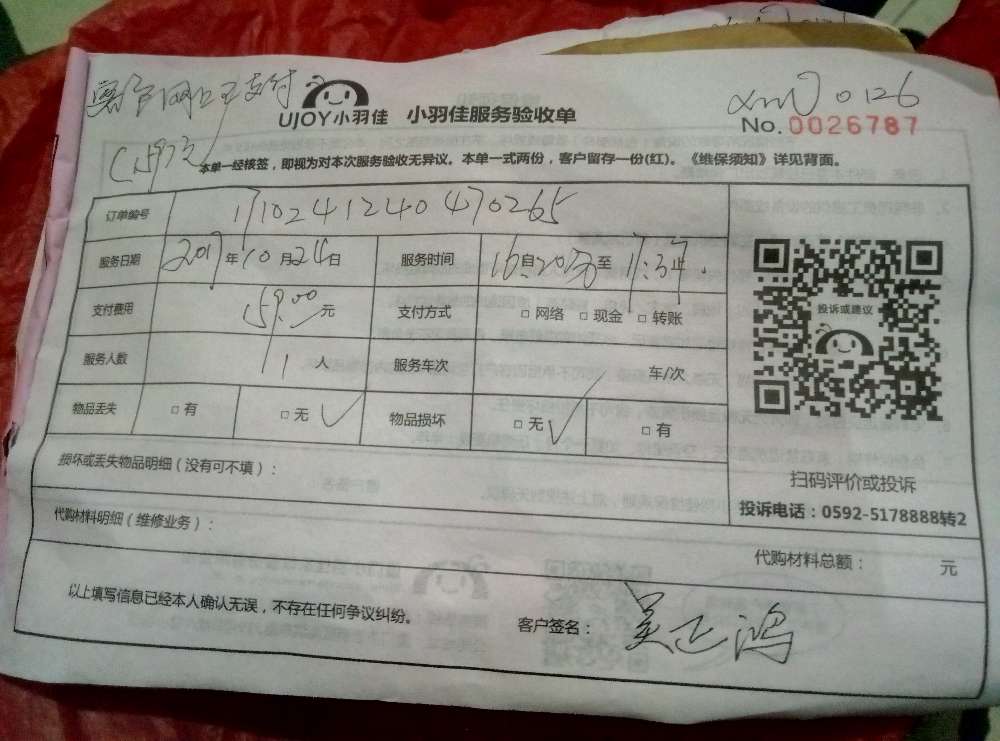 网上支付
(159元)
UJOY小羽佳 小羽佳服务验收单
xmw 0126
No.0026787
本单一经核签，即视为对本次服务验收无异议。本单一式两份，客户留存一份(红)。《维保须知》详见背面。
订单编号 171024124047 0265
服务日期 2017年10月24日 服务时间 16:20 至
支付费用 159.00元 支付方式 □ 网络 □ 现金 □ 转账
服务人数 1 人 服务车次 车/次
物品丢失 □ 有 □ 无 ✓ 物品损坏 □ 无 ✓ □ 有
投诉或建议
扫码评价或投诉
投诉电话：0592-5178888转2
损坏或丢失物品明细（没有可不填）：
代购材料明细（维修业务）：
代购材料总额： 元
以上填写信息已经本人确认无误，不存在任何争议纠纷。
客户签名： 吴正鸿